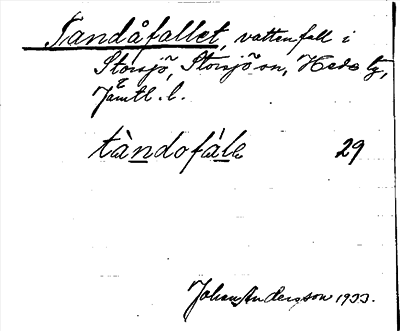 Tandåfallet, vattenfall i
Storsjö, Storsjö sn, Hede tg,
Jämtl. l.
tàndofàle 29
Johan Andersson 1933.